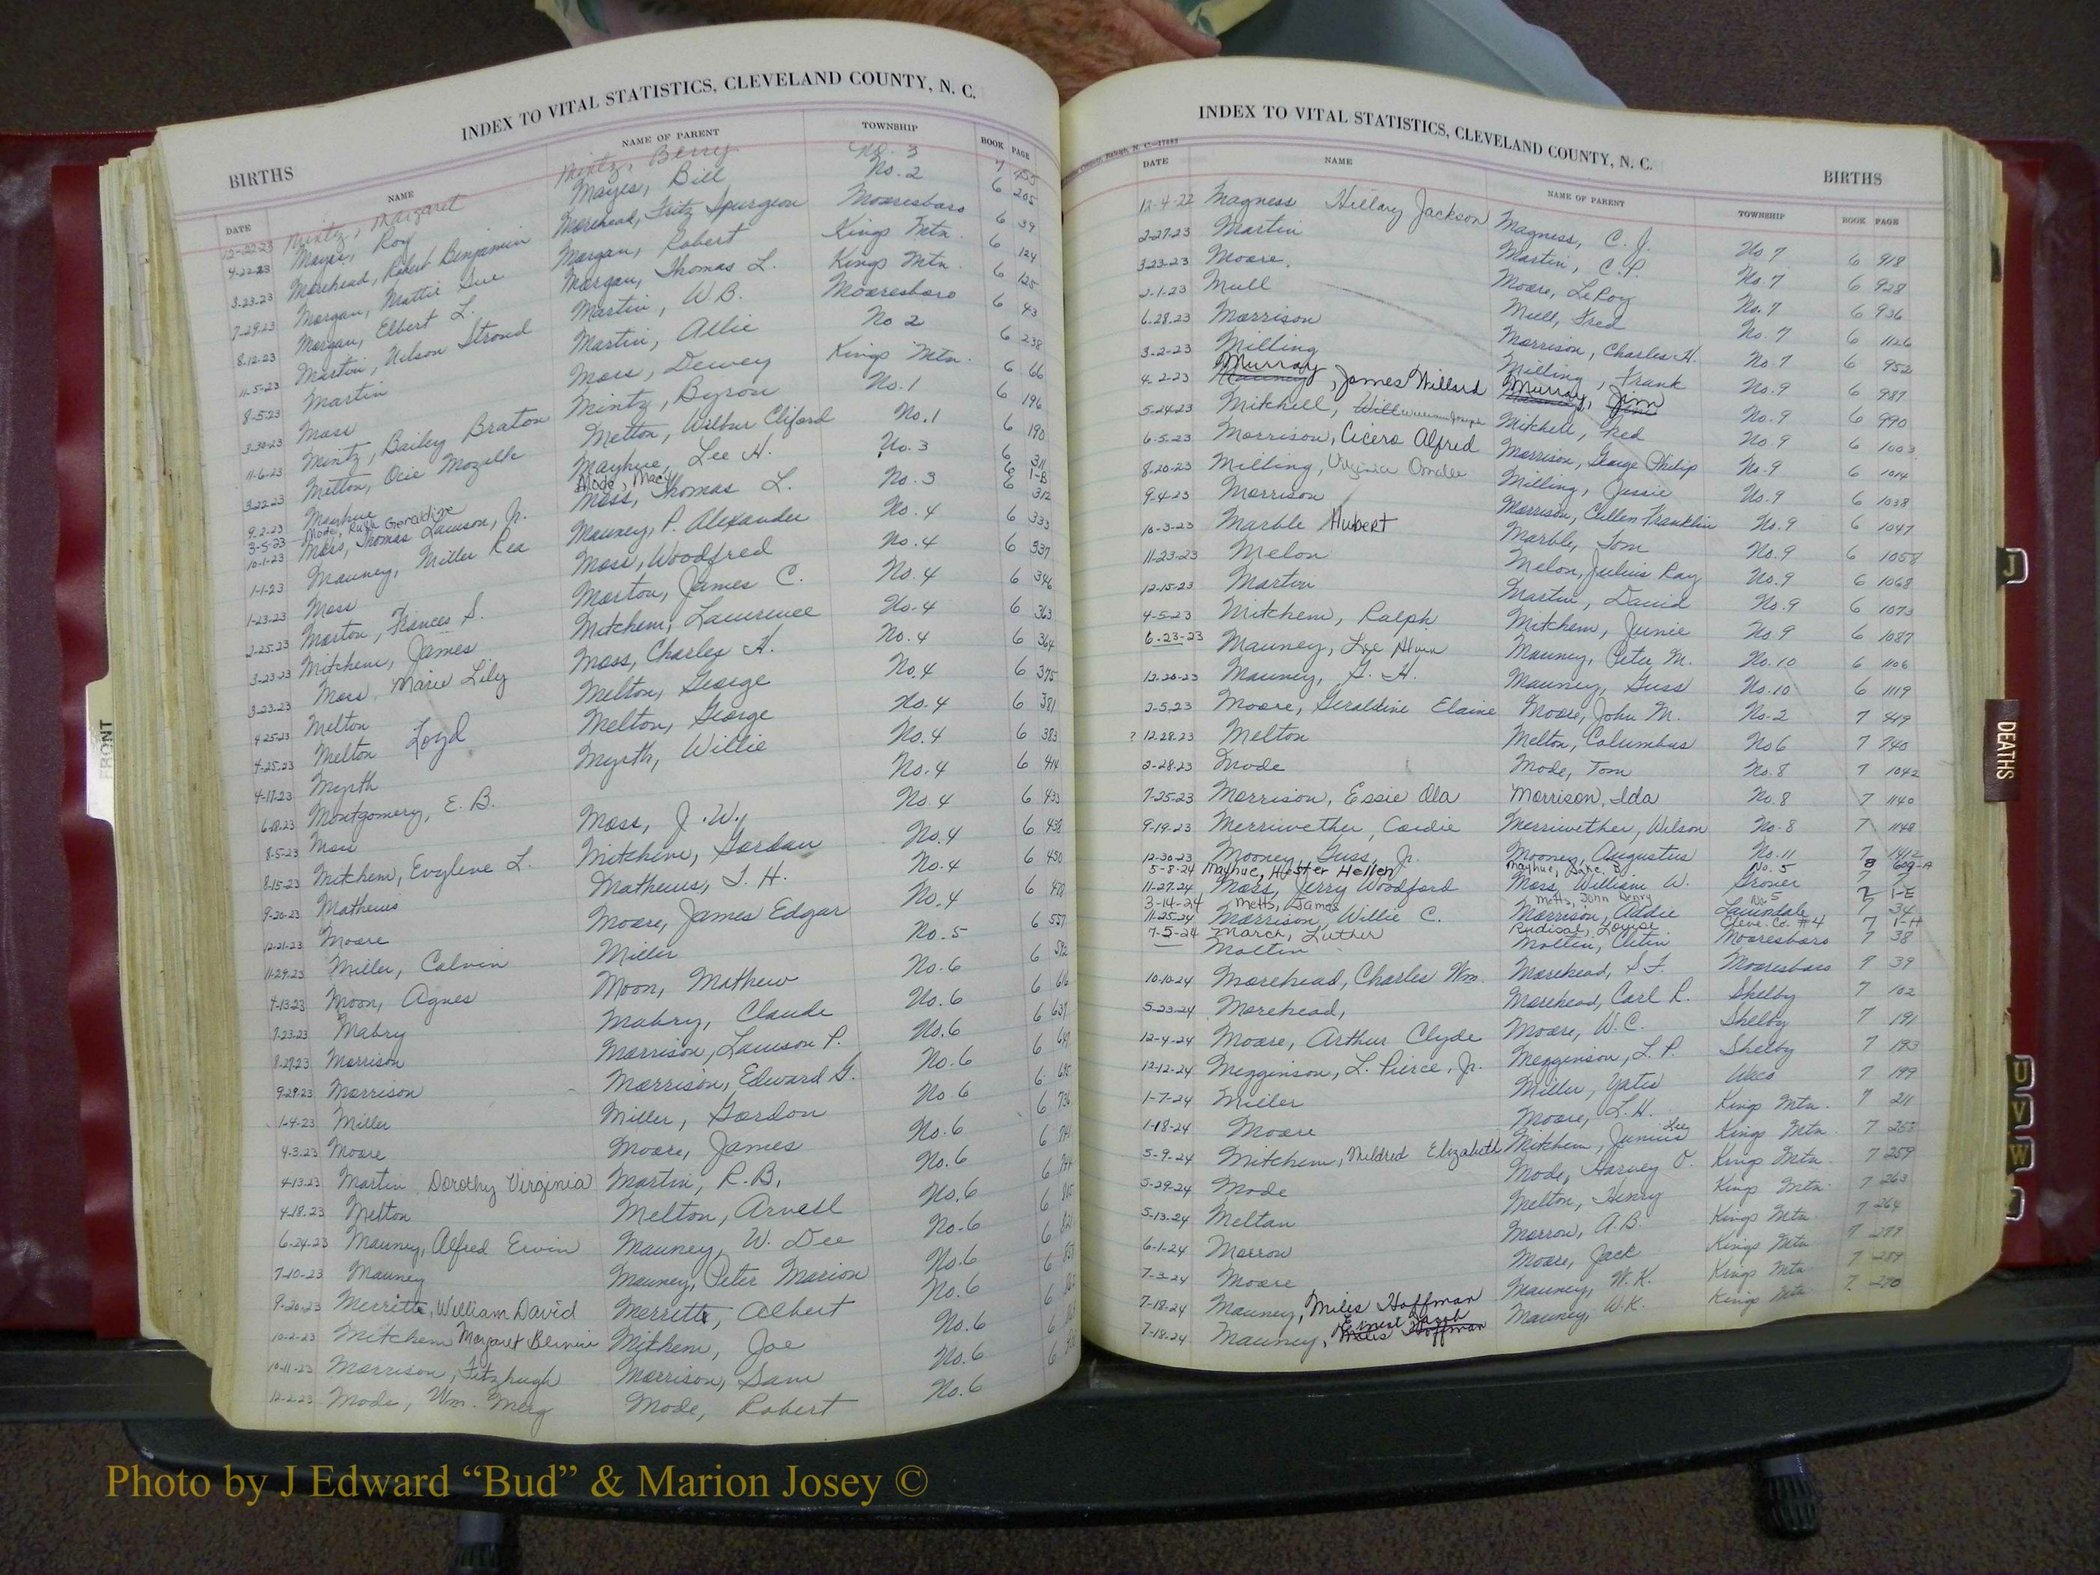 INDEX TO VITAL STATISTICS, CLEVELAND COUNTY, N. C.
BIRTHS
DATE NAME NAME OF PARENT TOWNSHIP BOOK PAGE
12-22-23 Mintz, Margaret Mintz, Berry No. 3 7
4-22-23 Mayes, Roy Mayes, Bill No. 2 6 205
3-23-23 Morehead, Robert Benjamin Morehead, Fritz Spurgeon Mooresboro 6 39
7-29-23 Morgan, Mattie Sue Morgan, Robert Kings Mtn. 6 124
8-12-23 Morgan, Elbert L. Morgan, Thomas L. Kings Mtn. 6 125
11-5-23 Martin, Nelson Stroud Martin, W. B. Mooresboro 6 43
8-5-23 Martin Martin, Allie No 2 6 238
3-30-23 Moss Moss, Dewey Kings Mtn. 6 66
11-6-23 Mintz, Bailey Braton Mintz, Byron No. 1 6 196
3-22-23 Melton, Ocie Mozelle Melton, Wilbur Cliford No. 1 6 190
9-2-23 Mayhue Mayhue, Lee H. No. 3 6 311
3-5-23 Mode, Ruth Geraldine Mode, Macy 6 1-B
10-1-23 Moss, Thomas Lawson, Jr. Moss, Thomas L. No. 3 6 312
1-1-23 Mauney, Miller Rea Mauney, P. Alexander No. 4 6 333
1-23-23 Moss Moss, Woodfred No. 4 6 337
2-25-23 Morton, Frances S. Morton, James C. No. 4 6 346
3-23-23 Mitchem, James Mitchem, Lawrence No. 4 6 363
3-23-23 Moss, Marie Lily Moss, Charles H. No. 4 6 364
4-25-23 Melton Melton, George No. 4 6 375
4-25-23 Melton Loyd Melton, George No. 4 6 381
4-17-23 Myrth Myrth, Willie No. 4 6 383
6-18-23 Montgomery, E. B. No. 4 6 414
8-5-23 Moss Moss, J. W. No. 4 6 433
8-15-23 Mitchem, Evylene L. Mitchem, Gordan No. 4 6 438
9-20-23 Mathews Mathews, T. H. No. 4 6 450
12-21-23 Moore Moore, James Edgar No. 4 6
11-29-23 Miller, Calvin Miller No. 5 6 557
4-13-23 Moon, Agnes Moon, Mathew No. 6 6 592
7-23-23 Mabry Mabry, Claude No. 6 6 616
8-27-23 Morrison Morrison, Lawson P. No. 6 6 637
9-29-23 Morrison Morrison, Edward G. No. 6 6
1-4-23 Miller Miller, Gordon No 6 6
4-3-23 Moore Moore, James No. 6 6 736
4-13-23 Martin Dorothy Virginia Martin, R. B. No. 6 6
4-18-23 Melton Melton, Arvell No. 6 6
6-24-23 Mauney, Alfred Ervin Mauney, W. Dee No. 6 6
7-10-23 Mauney Mauney, Peter Marion No. 6 6
9-20-23 Merritt, William David Merritt, Albert No. 6 6
10-2-23 Mitchem Margaret Mitchem, Joe No. 6 6
10-11-23 Morrison, Fitzhugh Morrison, Sam No. 6 6
12-2-23 Mode, Wm. Merg Mode, Robert No. 6
INDEX TO VITAL STATISTICS, CLEVELAND COUNTY, N. C.
BIRTHS
DATE NAME NAME OF PARENT TOWNSHIP BOOK PAGE
12-4-22 Magness Hillary Jackson Magness, C. J. No 7 6 918
2-27-23 Martin Martin, C. P. No. 7 6 928
3-23-23 Moore, Moore, LeRoy No. 7 6 936
2-1-23 Mull Mull, Fred No. 7 6 1126
6-28-23 Morrison Morrison, Charles H. No 7 6 952
3-2-23 Milling Milling, Frank No. 9 6 987
4-2-23 Murray, James Willard Murray, Jim No. 9 6 990
5-24-23 Mitchell, Will William Joseph Mitchell, Fred No. 9 6 1003
6-5-23 Morrison, Cicero Alfred Morrison, George Philip No. 9 6 1014
8-20-23 Milling, Virginia Milling, Jessie No. 9 6 1038
9-4-23 Morrison Morrison, Cullen Franklin No. 9 6 1047
10-3-23 Marble Hubert Marble, Tom No. 9 6 1058
11-23-23 Melon Melon, Julius Ray No. 9 6 1068
12-15-23 Martin Martin, David No. 9 6 1073
4-5-23 Mitchem, Ralph Mitchem, Junie No. 9 6 1087
6-23-23 Mauney, Lee Alvin Mauney, Peter M. No. 10 6 1106
12-20-23 Mauney, G. H. Mauney, Guss No. 10 6 1119
2-5-23 Moore, Geraldine Elaine Moore, John M. No. 2 7 419
? 12-28-23 Melton Melton, Columbus No 6 7 740
2-28-23 Mode Mode, Tom No. 8 7 1042
7-25-23 Morrison, Essie Ola Morrison, Ida No. 8 7 1140
9-19-23 Merriwether, Cordie Merriwether, Wilson No. 8 7 1148
12-30-23 Mooney, Guss, Jr. Mooney, Augustus No. 11 7 1412
5-8-24 Mayhue, Hester Hellen Mayhue, No. 5 8 609-A
11-27-24 Moss, Jerry Woodford Moss William W. Grover 7
3-14-24 Metts, James Metts, John Henry No 5 7 1-E
11-25-24 Morrison, Willie C. Morrison, Addie Lawndale 7 34
7-5-24 March, Luther Rudisal, Louise Cleve. Co. #4 7 1-H
Moltin Moltin, Cletin Mooresboro 7 38
10-10-24 Morehead, Charles Wm. Morehead, S. F. Mooresboro 7 39
5-23-24 Morehead, Morehead, Carl R. Shelby 7 102
12-4-24 Moore, Arthur Clyde Moore, W. C. Shelby 7 191
12-12-24 Megginson, L. Pierce, Jr. Megginson, L. P. Shelby 7 193
1-7-24 Miller Miller, Yates Waco 7 199
1-18-24 Moore Moore, L. H. Kings Mtn. 7 211
5-9-24 Mitchem, Mildred Elizabeth Mitchem, Junius Lee Kings Mtn. 7 258
5-29-24 Mode Mode, Harvey O. Kings Mtn. 7 259
5-13-24 Melton Melton, Henry Kings Mtn. 7 263
6-1-24 Morrow Morrow, A. B. Kings Mtn 7 264
7-3-24 Moore Moore, Jack Kings Mtn 7 277
7-18-24 Mauney, Miles Hoffman Mauney, W. K. Kings Mtn 7 289
7-18-24 Mauney, Ernest Jacob Miles Hoffman Mauney, W. K. Kings Mtn 7 290
FRONT
J
DEATHS
U
V
W
Photo by J Edward “Bud” & Marion Josey ©